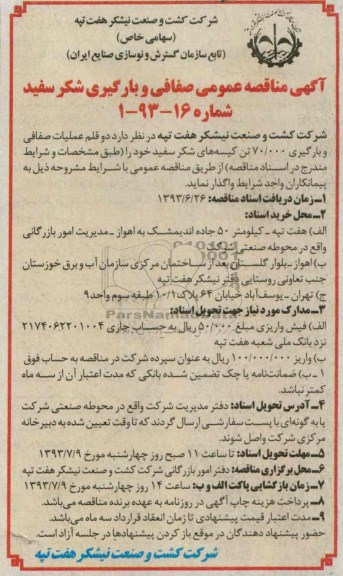 شرکت کشت و صنعت نیشکر هفت تپه
(سهامی خاص)
(تابع سازمان گسترش و نوسازی صنایع ایران)
آگهی مناقصه عمومی صفافی و بارگیری شکر سفید
شماره ۱۶-۹۳-۱
شرکت کشت و صنعت نیشکر هفت تپه در نظر دارد دو قلم عملیات صفافی
و بارگیری ۷۰/۰۰۰ تن کیسه‌های شکر سفید خود را (طبق مشخصات و شرایط
مندرج در اسناد مناقصه) از طریق مناقصه عمومی با شرایط مشروحه ذیل به
پیمانکاران واجد شرایط واگذار نماید.
۱ـ زمان دریافت اسناد مناقصه: ۱۳۹۳/۶/۲۶
۲ـ محل خرید اسناد:
الف) هفت تپه ـ کیلومتر ۵۰ جاده اندیمشک به اهواز ـ مدیریت امور بازرگانی
واقع در محوطه صنعتی
ب) اهواز ـ بلوار گلستان بعد از ساختمان مرکزی سازمان آب و برق خوزستان
جنب تعاونی روستایی دفتر نیشکر هفت تپه
ج) تهران ـ یوسف‌آباد خیابان ۶۴ پلاک ۱۰/۱ طبقه سوم واحد ۹
۳ـ مدارک مورد نیاز جهت تحویل اسناد:
الف) فیش واریزی مبلغ ۵۰/۰۰۰ ریال به حساب جاری ۲۱۷۴۰۶۲۲۰۱۰۰۴
نزد بانک ملی شعبه هفت تپه
ب) واریز ۱۰۰/۰۰۰/۰۰۰ ریال به عنوان سپرده شرکت در مناقصه به حساب فوق
۱ ـ ب) ضمانت‌نامه یا چک تضمین شده بانکی که مدت اعتبار آن از سه ماه
کمتر نباشد.
۴ـ آدرس تحویل اسناد: دفتر مدیریت شرکت واقع در محوطه صنعتی شرکت
یا به گونه‌ای با پست سفارشی ارسال گردند که تا وقت تعیین شده به دبیرخانه
مرکزی شرکت واصل شوند.
۵ـ مهلت تحویل اسناد: تا ساعت ۱۱ صبح روز چهارشنبه مورخ ۱۳۹۳/۷/۹
۶ـ محل برگزاری مناقصه: دفتر امور بازرگانی شرکت کشت و صنعت نیشکر هفت تپه
۷ـ زمان بازگشایی پاکت الف و ب: ساعت ۱۴ روز چهارشنبه مورخ ۱۳۹۳/۷/۹
۸ـ پرداخت هزینه چاپ آگهی در روزنامه به عهده برنده مناقصه می‌باشد.
۹ـ مدت اعتبار قیمت پیشنهادی تا زمان انعقاد قرارداد سه ماه می‌باشد.
حضور پیشنهاد دهندگان در موقع باز کردن پیشنهادها در جلسه آزاد است.
شرکت کشت و صنعت نیشکر هفت تپه